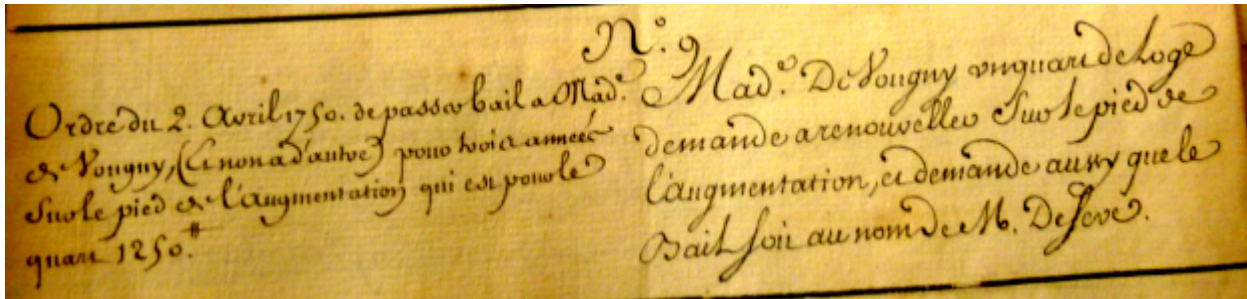 N.º 9
Ordre du 2. Avril 1750. de passer bail a Mad.e
de Vougny, (et non a d'autre) pour trois années
sur le pied de l'augmentation qui est pour le
quart 1250.#
Mad.e De Vougny un quart de Loge
demande a renouveller sur le pied de
l'augmentation, et demande aussy que le
Bail soit au nom de M. De Seve.